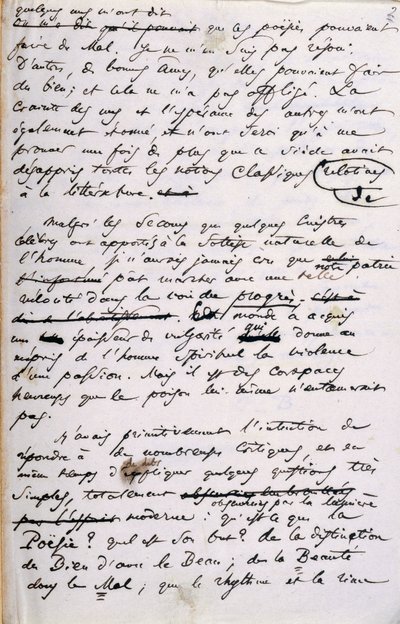 quelques uns m'ont dit
que les poésies pouvaient
faire du Mal. Je ne m'en suis pas réjoui.
D'autres, de bonnes âmes, qu'elles pouvaient faire
du bien ; et cela ne m'a pas affligé. La
crainte des uns et l'espérance des autres m'ont
également étonné, et n'ont servi qu'à me
prouver une fois de plus que ce siècle avait
désappris toutes les notions classiques relatives
à la littérature.
Malgré les secours que quelques cuistres
célèbres ont apportés à la sottise naturelle de
l'homme je n'aurais jamais cru que notre patrie
pût marcher avec une telle
vélocité dans la voie du progrès.
monde a acquis
une épaisseur de vulgarité qui donne au
mépris de l'homme spirituel la violence
d'une passion. Mais il est des carapaces
heureuses que le poison lui-même n'entamerait
pas.
J'avais primitivement l'intention de
répondre à de nombreuses critiques, et en
même temps d'expliquer quelques questions très
simples, totalement obscurcies par la lumière
moderne : qu'est-ce que la
Poésie ? quel est son but ? de la distinction
du Bien d'avec le Beau ; de la Beauté
dans le Mal ; que le rhythme et la rime